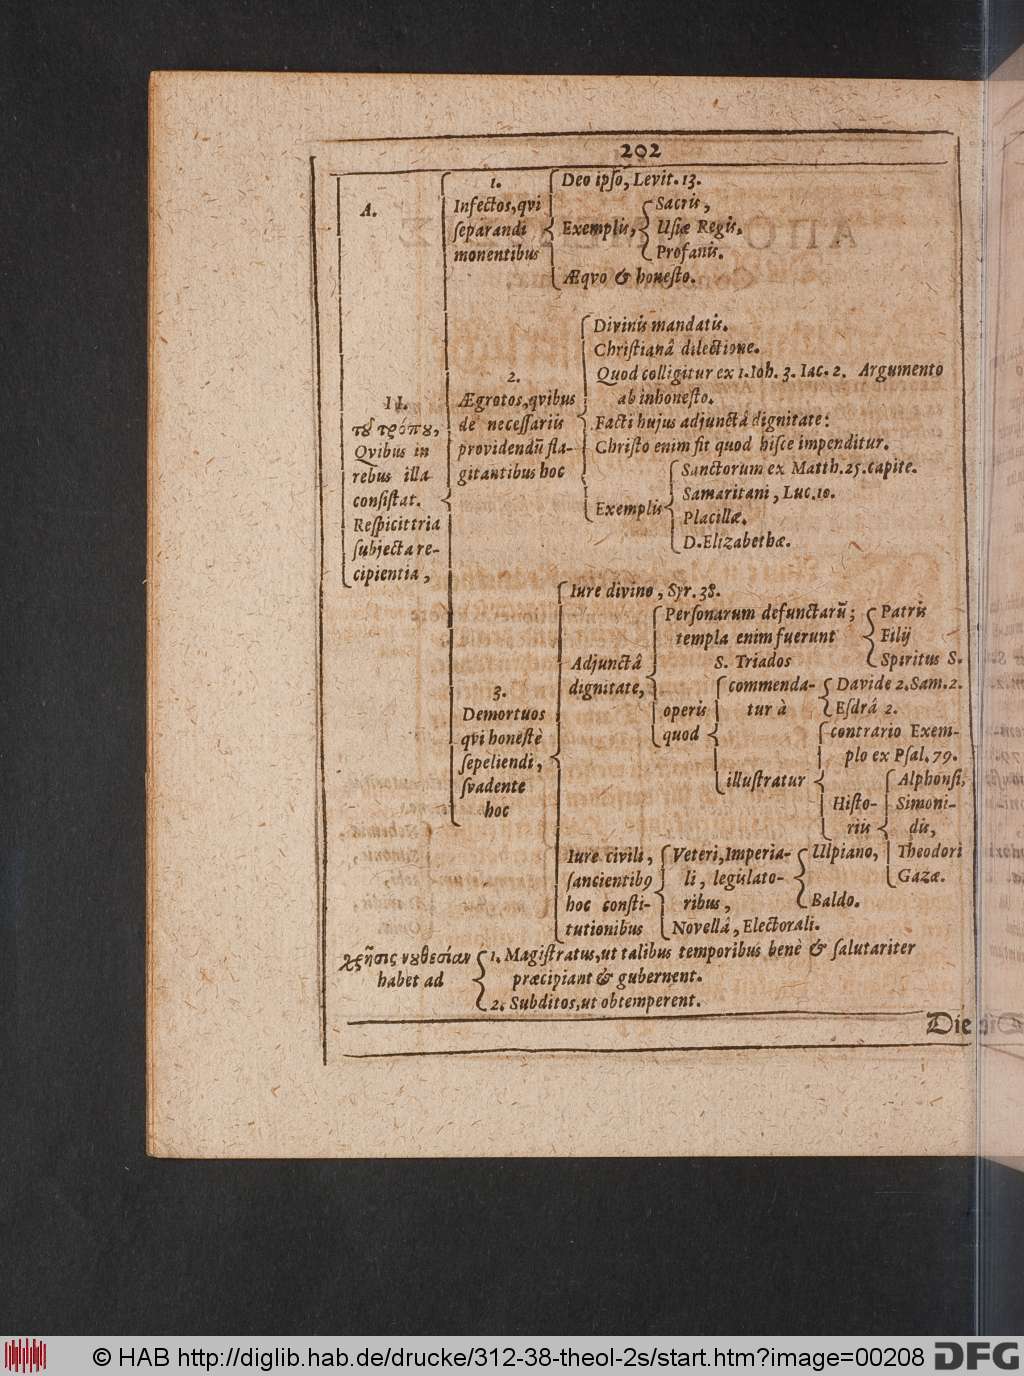 202
A.
II.
τȣ͂ τρόπȣ,
Qvibus in
rebus illa
consistat.
Respicit tria
subjecta re-
cipientia,
1.
Infectos, qvi
separandi
monentibus
Deo ipso, Levit. 13.
Exemplis,
Sacris,
Usiæ Regis,
Profanis.
Æqvo & honesto.
2.
Ægrotos, qvibus
de necessariis
providendū fla-
gitantibus hoc
Divinis mandatis.
Christianâ dilectione.
Quod colligitur ex 1. Ioh. 3. Iac. 2. Argumento
ab inhonesto.
Facti hujus adjunctâ dignitate:
Christo enim fit quod hisce impenditur.
Exemplis
Sanctorum ex Matth. 25. capite.
Samaritani, Luc. 10.
Placillæ.
D. Elizabethæ.
3.
Demortuos
qvi honestè
sepeliendi,
svadente
hoc
Iure divino, Syr. 38.
Adjunctâ
dignitate,
Personarum defunctarū;
templa enim fuerunt
S. Triados
Patris
Filij
Spiritus S.
operis
quod
commenda-
tur à
Davide 2. Sam. 2.
Esdrâ 2.
illustratur
contrario Exem-
plo ex Psal. 79.
Histo-
riis
Alphonsi,
Simoni-
dis,
Theodori
Gazæ.
Iure civili,
sancientib9
hoc consti-
tutionibus
Veteri, Imperia-
li, legislato-
ribus,
Ulpiano,
Baldo.
Novellâ, Electorali.
χρῆσις νȣθεσίαν
habet ad
1. Magistratus, ut talibus temporibus benè & salutariter
præcipiant & gubernent.
2. Subditos, ut obtemperent.
Die
© HAB http://diglib.hab.de/drucke/312-38-theol-2s/start.htm?image=00208
DFG